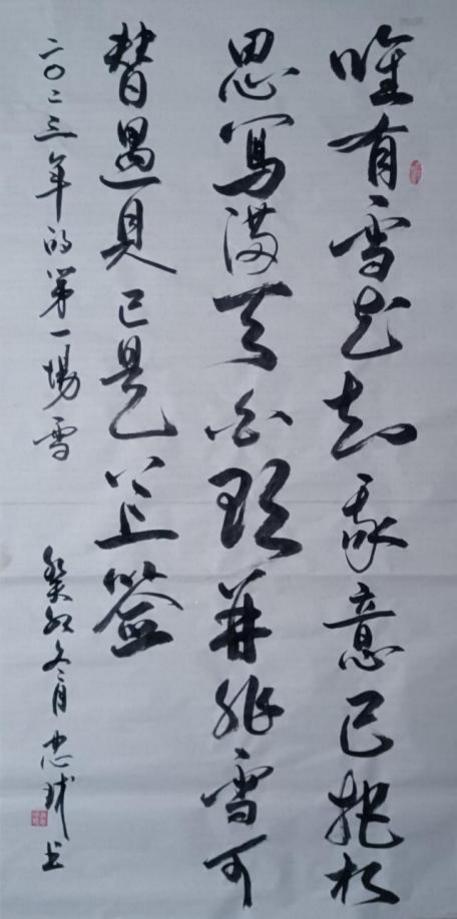 唯有雪花知我意已把相
思寫滿天白頭并非雪可
替遇見已是上上簽
二〇二三年的第一場雪
癸卯冬月忠